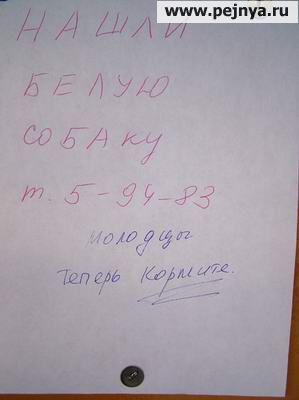 www.pejnya.ru
НАШЛИ
БЕЛУЮ
СОБАКУ
т. 5-94-83
молодцы
теперь кормите.